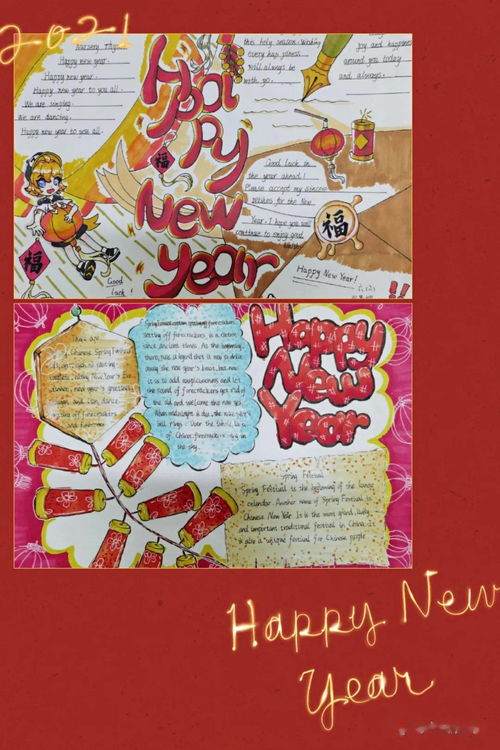 2021
Nursery rhyme
Happy new year.
Happy new year.
Happy new year to you all.
We are singing.
We are dancing.
Happy new year to you all.
Happy
New
year
this holy season. Wishing
every happiness
will always be
with you.
joy and happiness
around you today
and always.
Good luck in
the year ahead!
Please accept my sincere
wishes for the New
Year. I hope you will
continue to enjoy good
福
福
福
Good
luck!
Happy New Year!
!!
There are
Chinese Spring Festival
dinner, new year's greetings
and lion dance
setting off firecrackers
setting off firecrackers, is a custom
ancient times. At the beginning,
there was a legend that it was to drive
away the new year's beast, but now
it is to add auspiciousness and let
the sound of firecrackers get rid of
the old and welcome the new year.
When midnight is due, the new year's
bell rings. Over the whole land
of China, firecrackers in
the sky.
Happy
New
Year
Spring Festival
Spring Festival is the beginning of the lunar
calendar. Another name of Spring Festival is
Chinese New Year. It is the most grand, lively
and important traditional festival in China. It
is also a unique festival for Chinese people
Happy New
Year